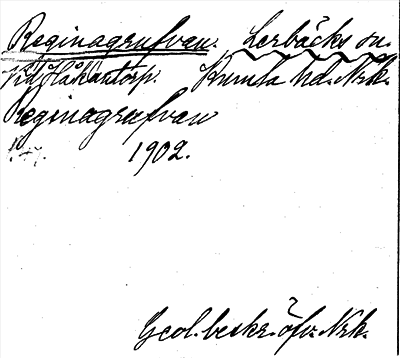 Reginagrufvan. Lerbäcks sn.
vid Håkantorp. Kumla hd. Nrk.
Reginagrufvan
1902.
Geol. beskr. öfv. Nrk.